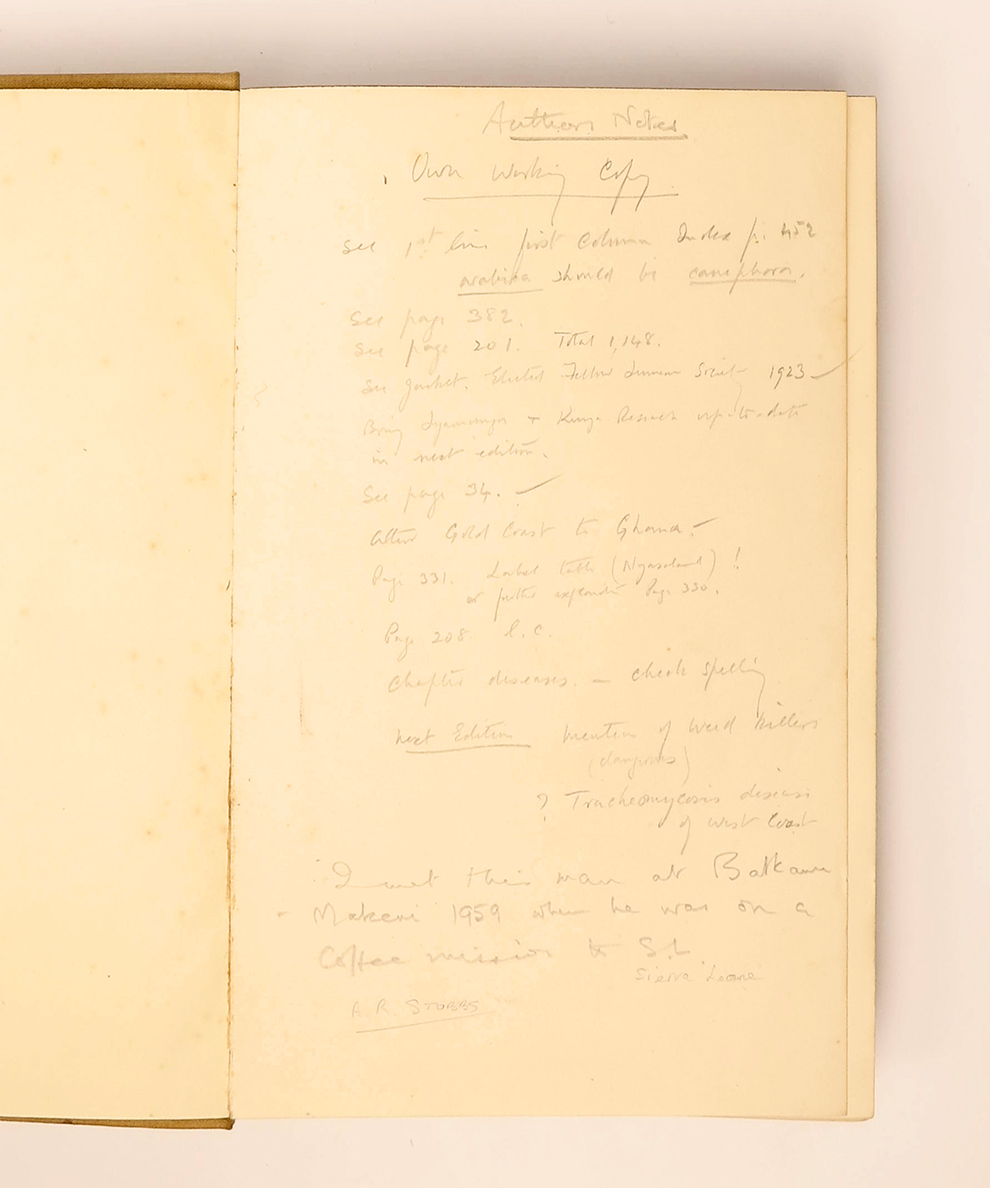 Authors Notes
Own Working Copy
See 1st line first Column Index p. 452
arabica should be canephora.
See page 382.
See page 201. Total 1,148.
See jacket. Elected Fellow Linnean Society 1923
Bring + Kenya Research up-to-date
in next edition.
See page 34.
Alter Gold Coast to Ghana.
Page 331. table (Nyasaland)!
or further Page 330.
Page 208. l.c.
Chapter diseases. — check spelling
Next Edition mention of weed killers
(dangerous)
? Tracheomycosis disease
of West Coast
I met this man at Batkanu
Makeni 1959 when he was on a
Coffee mission to S.L
Sierra Leone
A. R. STOBBS